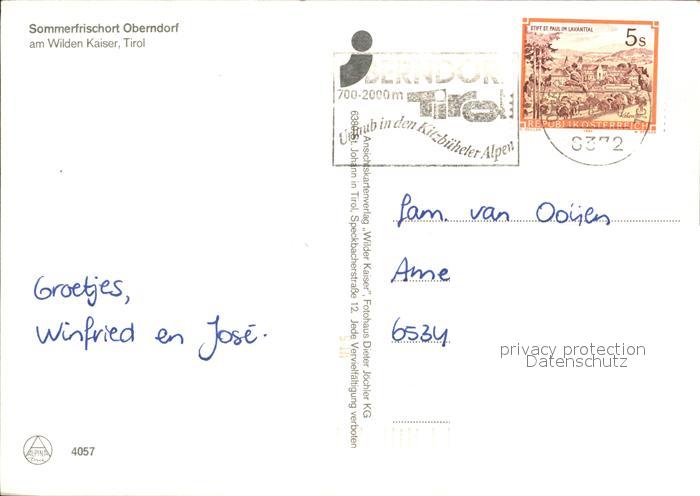 Sommerfrischort Oberndorf
am Wilden Kaiser, Tirol
Groetjes,
Winfried en José.
ALPINA
4057
Ansichtskartenverlag „Wilder Kaiser", Fotohaus Dieter Jöchler KG
St. Johann in Tirol, Speckbacherstraße 12. Jede Vervielfältigung verboten
BERNDORF
700-2000m Tirol
Urlaub in den Kitzbüheler Alpen
STIFT ST. PAUL IM LAVANTTAL
5s
REPUBLIK ÖSTERREICH
6372
Fam. van Ooijen
Ame
6534
privacy protection
Datenschutz